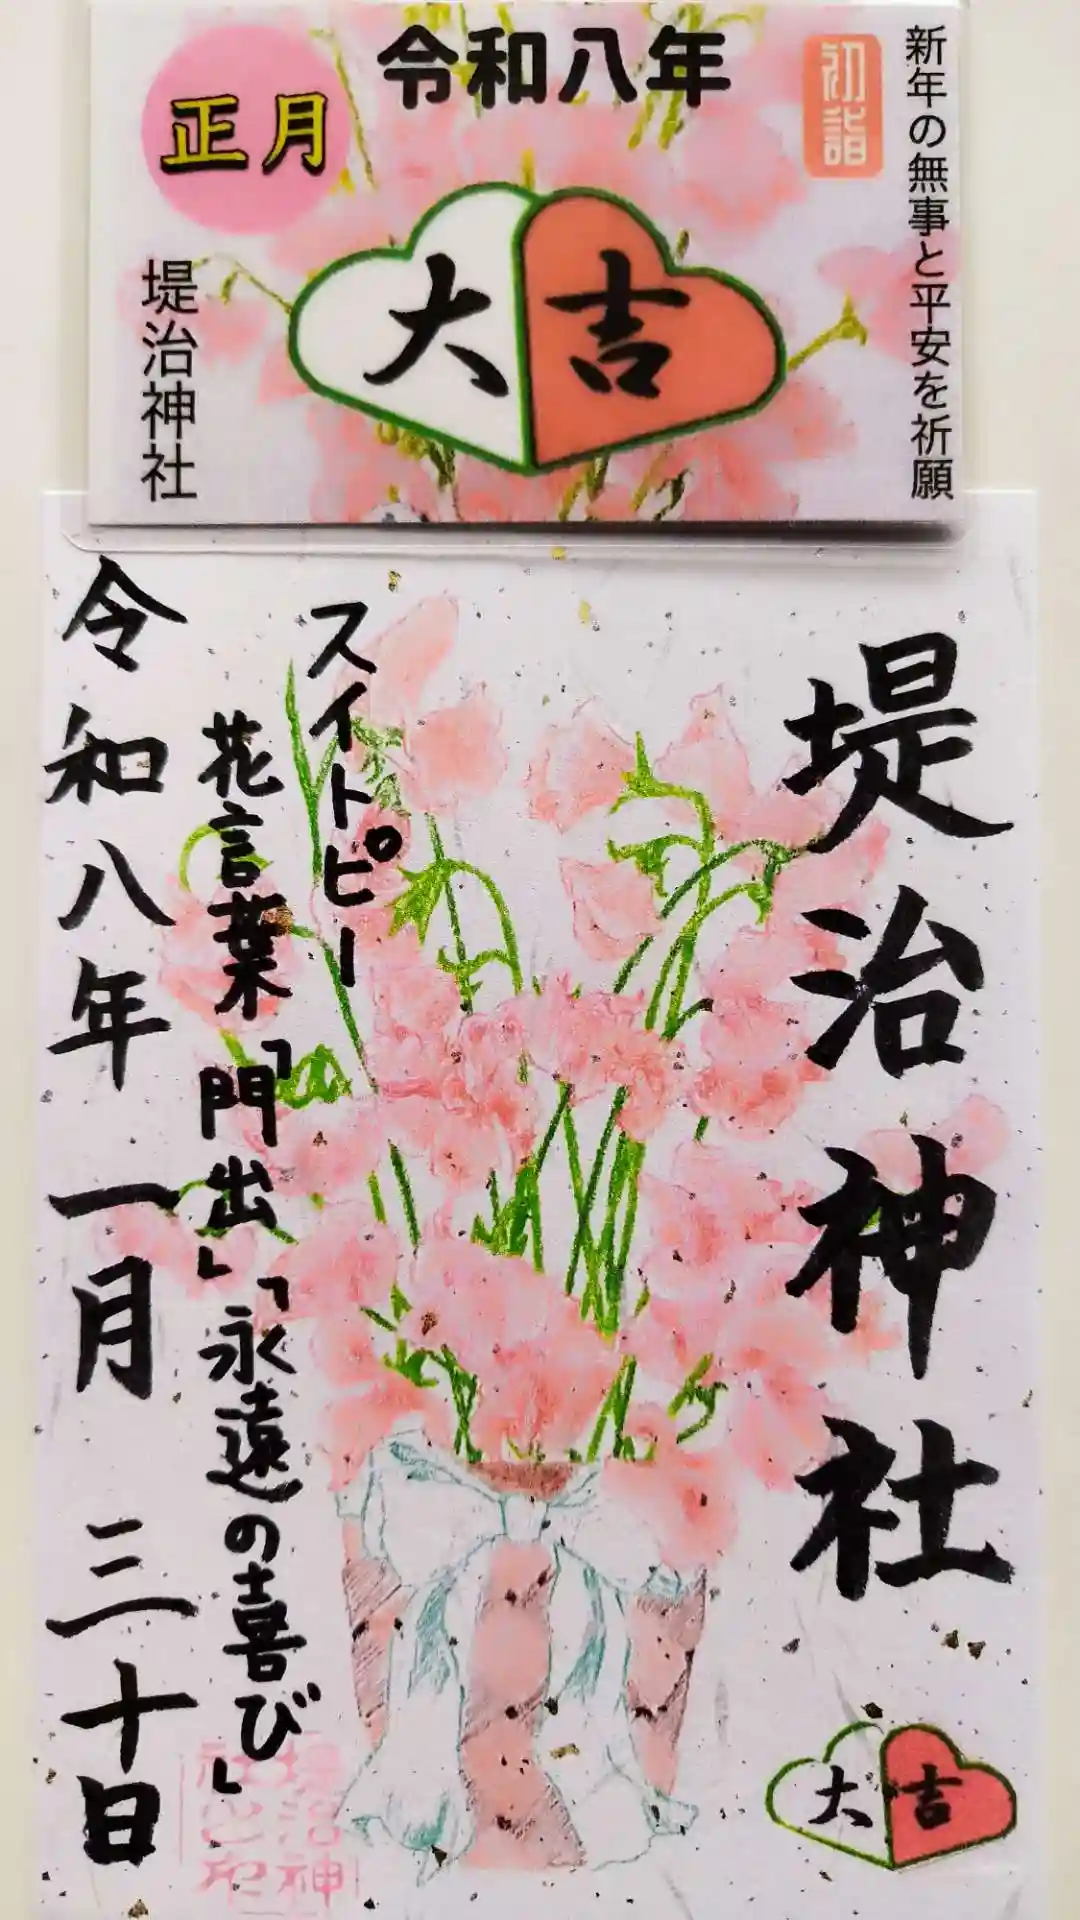 令和八年
初詣
新年の無事と平安を祈願
正月
大吉
堤治神社
堤治神社
スイトピー
花言葉「門出」「永遠の喜び」
令和八年一月三十日
大吉
堤治神
社之印